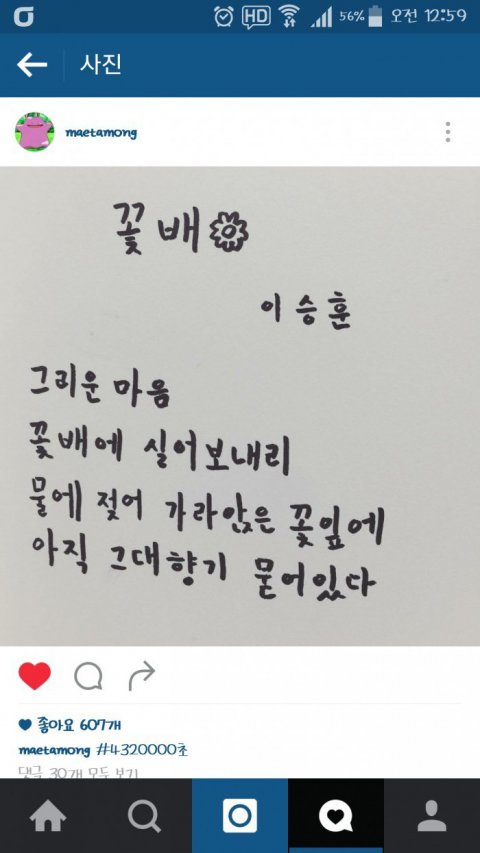 HD 56% 오전 12:59
사진
maetamong
꽃배
이승훈
그리운 마음
꽃배에 실어보내리
물에 젖어 가라앉은 꽃잎에
아직 그대향기 묻어있다
좋아요 607개
maetamong #4320000초
댓글 30개 모두 보기